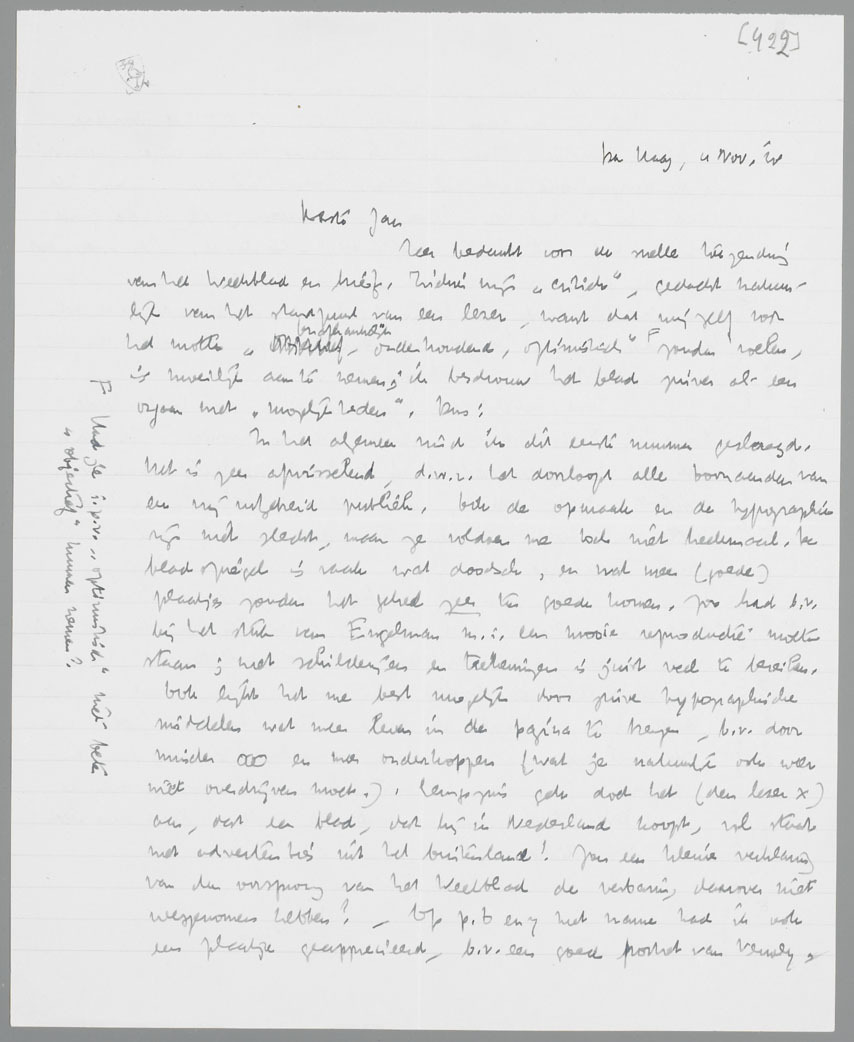 [422]
Den Haag, 11 Nov.
Beste Jan
Zeer bedankt voor de snelle toezending
van het Weekblad en brief. Hierbij mijn „critiek”, gedacht natuur-
lijk van het standpunt van een lezer, want dat wij zelf voor
het motto „onafhankelijk, onderhoudend, optimistisch” F zouden voelen,
is moeilijk aan te nemen; ik beschouw het blad puur als een
orgaan met „mogelijkheden”. Dus:
In het algemeen vind ik dit eerste nummer geslaagd.
Het is zeer afwisselend, d.w.z. het doorloopt alle
en vrij uitgebreid publiek. Ook de opmaak en de typographie
zijn niet slecht, maar ze voldoen me toch niet heelemaal. De
bladspiegel is vaak wat doodsch, en wat meer (goede)
plaatjes zouden het geheel zeer ten goede komen. Zoo had b.v.
bij het stuk van Engelman m.i. een mooie reproductie moeten
staan; met schilderijen en teekeningen is juist veel te bereiken.
Ook lijkt het me best mogelijk door puur typographische
middelen wat meer leven in de pagina te krijgen, b.v. door
minder ooo en meer onderkoppen (wat je natuurlijk ook weer
niet overdrijven moet.). doet het (den lezer X)
aan, dat een blad, dat hij in Nederland koopt, vol staat
met advertenties uit het buitenland! Zou een kleine verklaring
van den oorsprong van het Weekblad de verbazing daarover niet
weggenomen hebben? – Op p. 6 en 7 met name had ik ook
een plaatje geapprecieerd, b.v. een goed portret van Verwey,
F Had je i.p.v. „optimistisch” niet beter
„objectief” kunnen nemen?